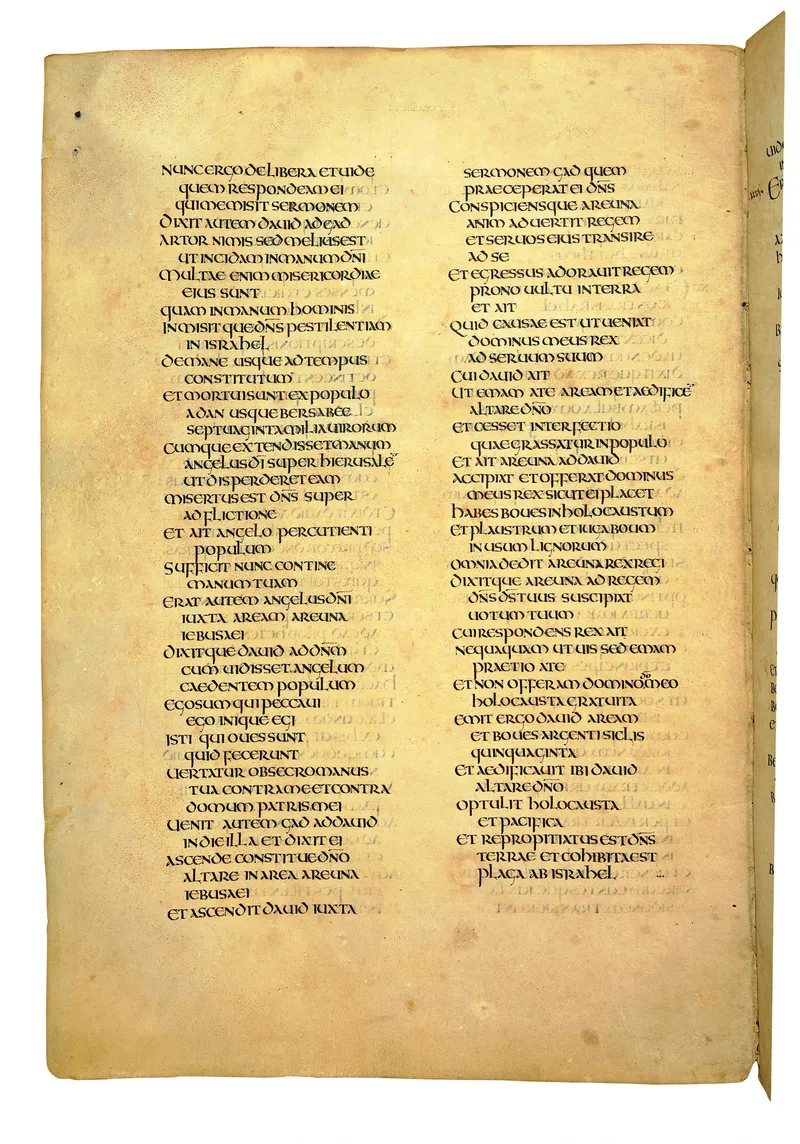 NUNC ERGO DELIBERA ET UIDE
QUEM RESPONDEAM EI
QUI ME MISIT SERMONEM
DIXIT AUTEM DAUID AD GAD
ARTOR NIMIS SED MELIUS EST
UT INCIDAM IN MANUM DNI
MULTAE ENIM MISERICORDIAE
EIUS SUNT
QUAM IN MANUM HOMINIS
INMISITQUE DNS PESTILENTIAM
IN ISRAHEL
DE MANE USQUE AD TEMPUS
CONSTITUTUM
ET MORTUI SUNT EX POPULO
A DAN USQUE BERSABEE
SEPTUAGINTA MILIA UIRORUM
CUMQUE EXTENDISSET MANUM
ANGELUS DI SUPER HIERUSALE̅
UT DISPERDERET EAM
MISERTUS EST DNS SUPER
ADFLICTIONE
ET AIT ANGELO PERCUTIENTI
POPULUM
SUFFICIT NUNC CONTINE
MANUM TUAM
ERAT AUTEM ANGELUS DNI
IUXTA AREAM AREUNA
IEBUSAEI
DIXITQUE DAUID AD DNM
CUM UIDISSET ANGELUM
CAEDENTEM POPULUM
EGO SUM QUI PECCAUI
EGO INIQUE EGI
ISTI QUI OUES SUNT
QUID FECERUNT
UERTATUR OBSECRO MANUS
TUA CONTRA ME ET CONTRA
DOMUM PATRIS MEI
UENIT AUTEM GAD AD DAUID
IN DIE ILLA ET DIXIT EI
ASCENDE CONSTITUE DNO
ALTARE IN AREA AREUNA
IEBUSAEI
ET ASCENDIT DAUID IUXTA
SERMONEM GAD QUEM
PRAECEPERAT EI DNS
CONSPICIENSQUE AREUNA
ANIMADUERTIT REGEM
ET SERUOS EIUS TRANSIRE
AD SE
ET EGRESSUS ADORAUIT REGEM
PRONO UULTU IN TERRA
ET AIT
QUID CAUSAE EST UT UENIAT
DOMINUS MEUS REX
AD SERUUM SUUM
CUI DAUID AIT
UT EMAM A TE AREAM ET AEDIFICE̅
ALTARE DNO
ET CESSET INTERFECTIO
QUAE GRASSATUR IN POPULO
ET AIT AREUNA AD DAUID
ACCIPIAT ET OFFERAT DOMINUS
MEUS REX SICUT EI PLACET
HABES BOUES IN HOLOCAUSTUM
ET PLAUSTRUM ET IUGA BOUM
IN USUM LIGNORUM
OMNIA DEDIT AREUNA REX REGI
DIXITQUE AREUNA AD REGEM
DNS DS TUUS SUSCIPIAT
UOTUM TUUM
CUI RESPONDENS REX AIT
NEQUAQUAM UT UIS SED EMAM
PRAETIO A TE
ET NON OFFERAM DOMINO DO MEO
HOLOCAUSTA GRATUITA
EMIT ERGO DAUID AREAM
ET BOUES ARGENTI SICLIS
QUINQUAGINTA
ET AEDIFICAUIT IBI DAUID
ALTARE DNO
OPTULIT HOLOCAUSTA
ET PACIFICA
ET REPROPITIATUS EST DNS
TERRAE ET COHIBITA EST
PLAGA AB ISRAHEL